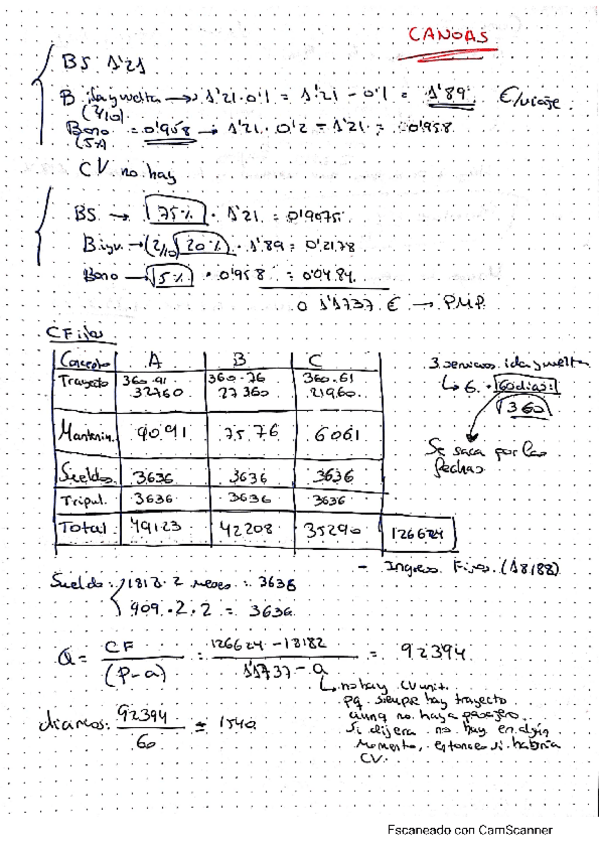 CANOAS
BS 1'21
B ida y vuelta → 1'21 · 0'1 = 1'21 - 0'1 = 1'89 €/viaje
(2/10)
Bono = 0'958 → 1'21 · 0'2 - 1'21 = 0'958
CV no hay
BS → 75% · 1'21 = 0'9075
B iyv. → (2/10) 20% · 1'89 = 0'2178
Bono → 5% · 0'958 = 0'0484
1'1737 € → P.M.P.
CFijos
Concepto A B C
Trayecto 360·91 360·76 360·61
32760 27360 21960
Mantenim. 9091 7576 6061
Sueldos 3636 3636 3636
Tripul. 3636 3636 3636
Total 49123 42208 35290 126624
3 servicios ida y vuelta
↳ 6 · 60 días:
360
Se saca por las
fechas
- Ingreso Fijos. (18188)
Sueldo: 1818 · 2 meses = 3636
909 · 2 · 2 = 3636
Q = CF / (P-a) = 126624 - 18182 / 1'1737 - 0 = 92394
↳ no hay CV unit.
pq siempre hay trayecto
aunq no haya pasajero.
Si dijera no hay en algún
momento, entonces si habría
CV.
diarios: 92394 / 60 = 1540
Escaneado con CamScanner